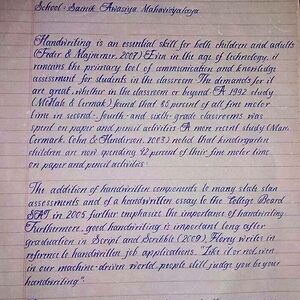 School:- Sainik Awasiya Mahavidyalaya
Handwriting is an essential skill for both children and adults
(Feder & Majnemer, 2007). Even in the age of technology, it
remains the primary tool of communication and knowledge
assessment for students in the classroom. The demands for it
are great, whether in the classroom or beyond. A 1992 study
(McHale & Cermak) found that 85 percent of all fine motor
time in second- fourth- and sixth-grade classrooms was
spent on paper and pencil activities. A more recent study (Marr,
Cermark, Cohn & Henderson, 2003) noted that kindergarten
children are now spending 42 percent of their fine motor time
on paper and pencil activities.
The addition of handwritten components to many state stan
assessments and of a handwritten essay to the College Board
SAT in 2005 further emphasize the importance of handwriting.
Furthermore, good handwriting is important long after
graduation in Script and Scribble (2009), Florey writes in
reference to handwritten job applications. "Like it or not, even
in our machine-driven world, people still judge you by your
handwriting."